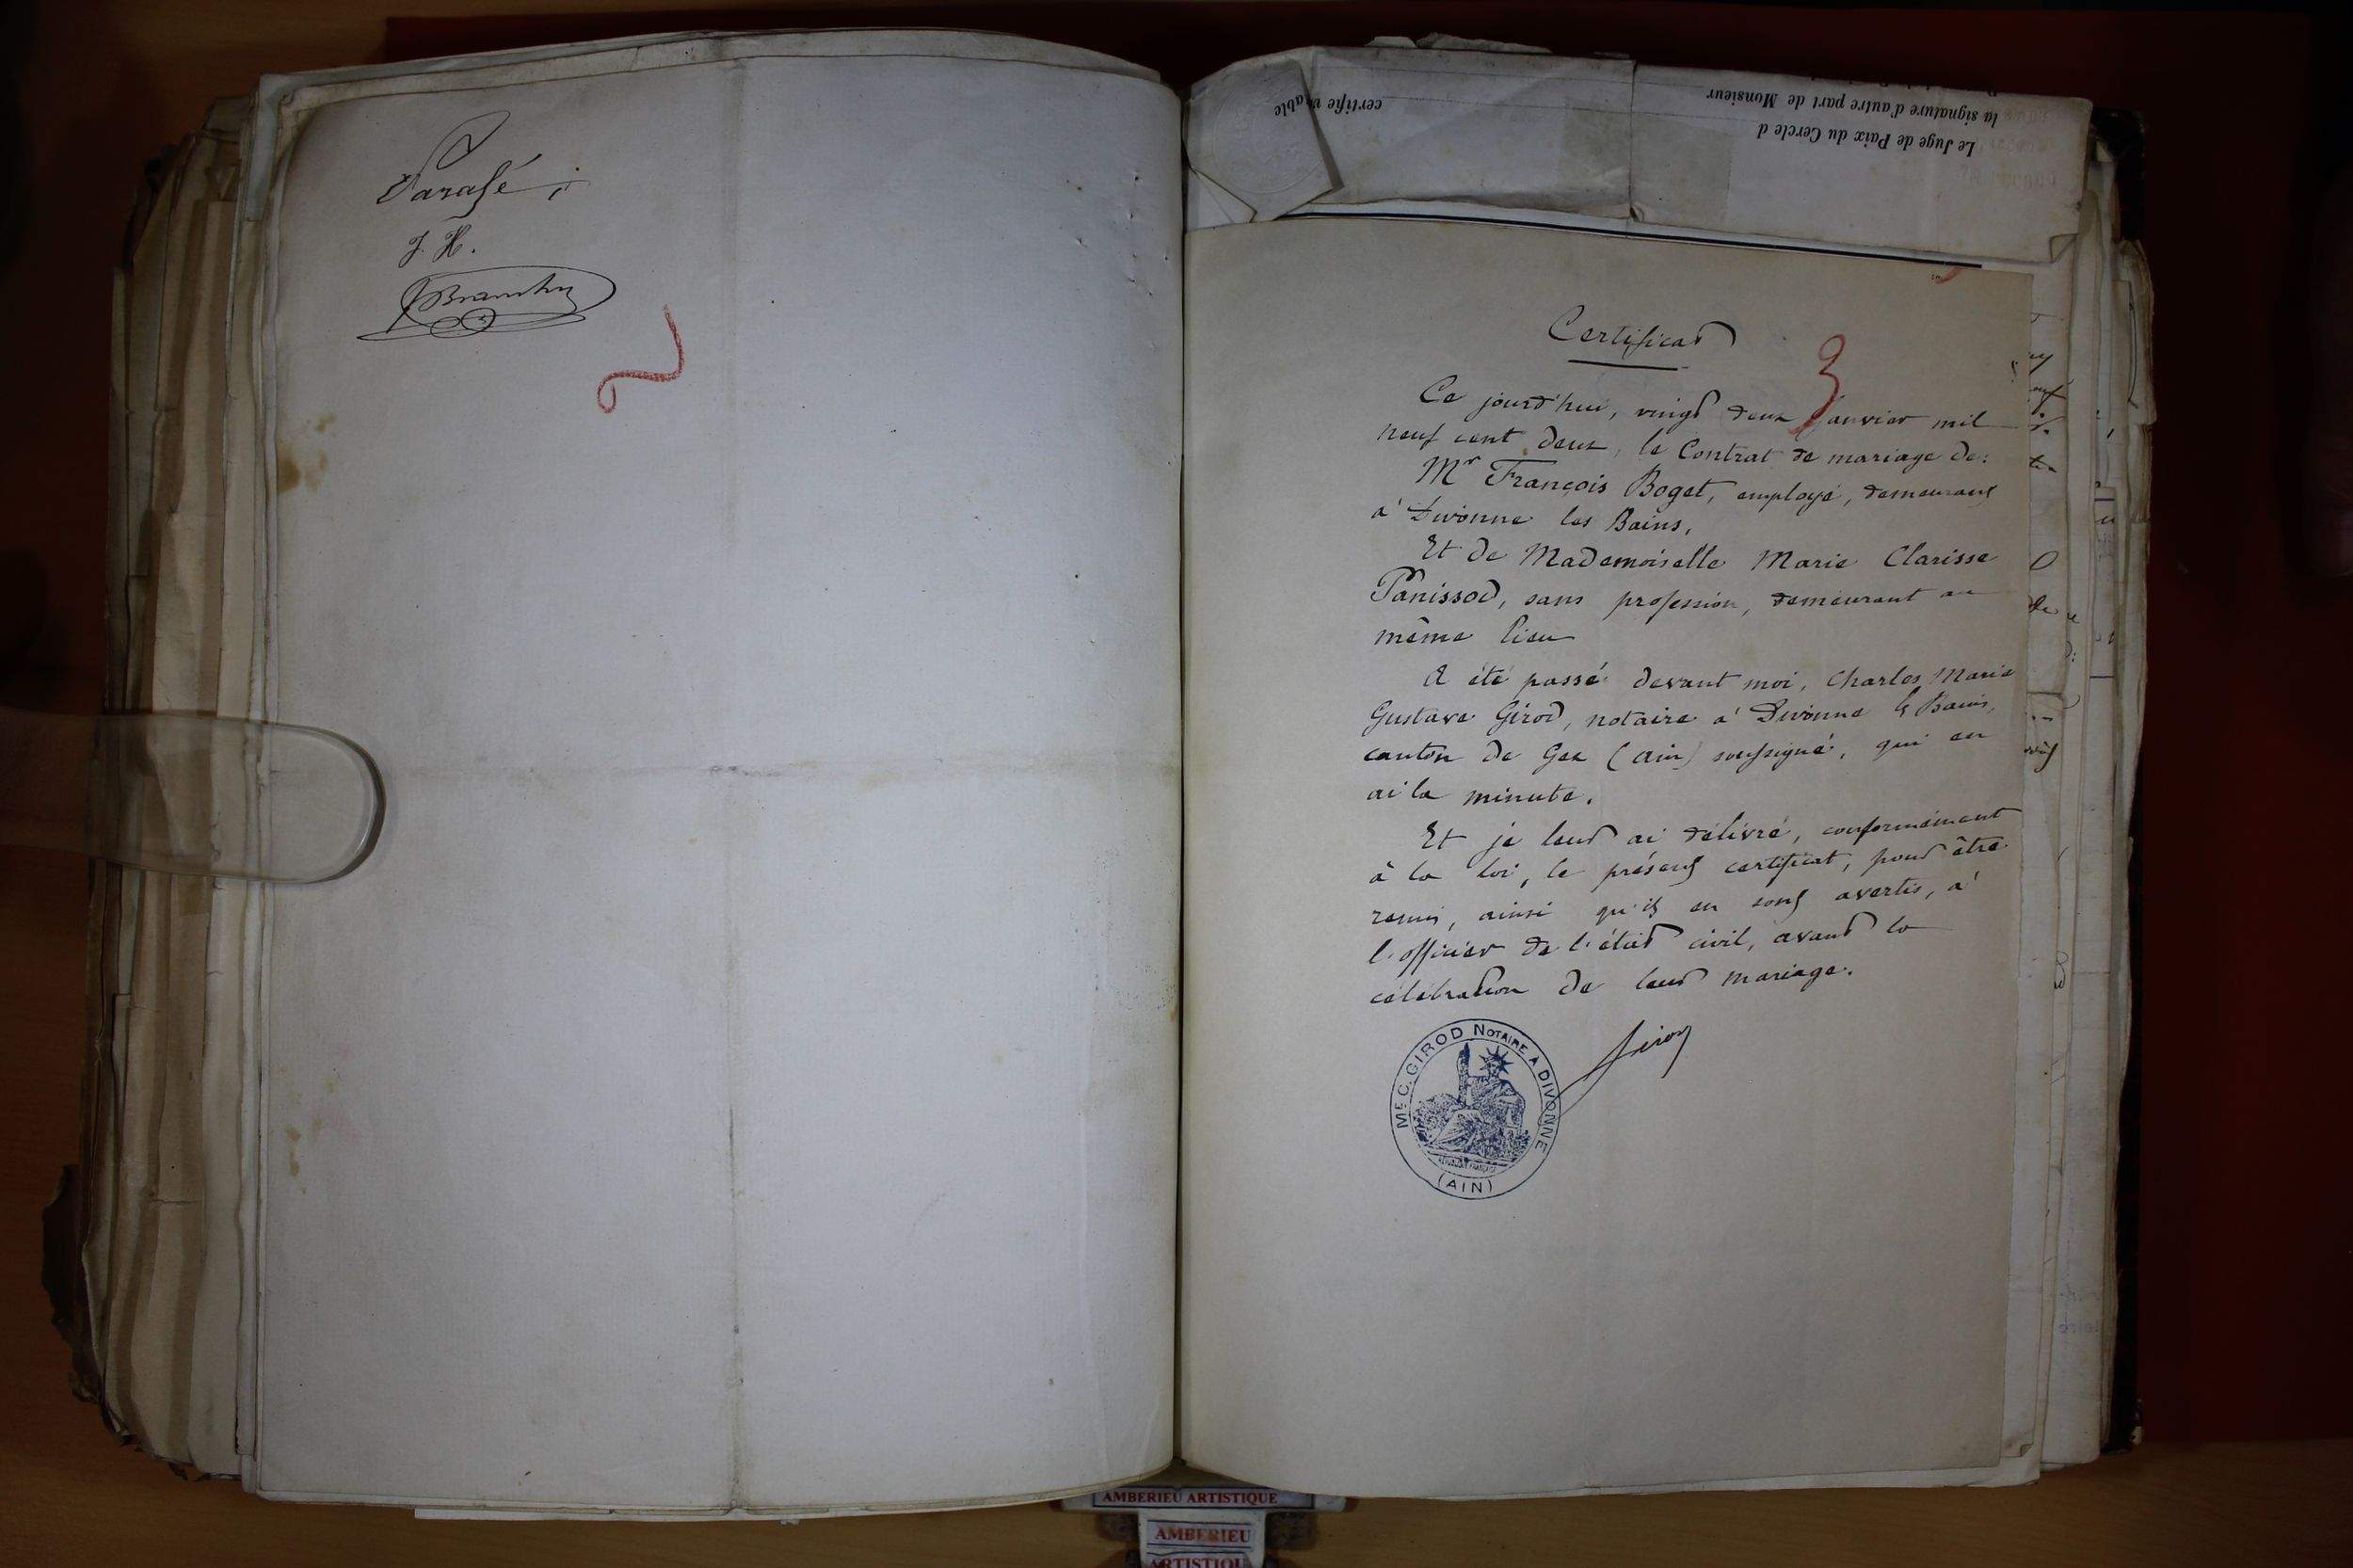 Parafé ;
J. H.
2
certifie v able
la signature d'autre part de Monsieur
Le Juge de Paix du Cercle d
Certificat
3
Ce jourd'hui, vingt deux Janvier mil
neuf cent deux, le Contrat de mariage de:
Mr François Boget, employé, demeurant
à Divonne les Bains,
Et de Mademoiselle Marie Clarisse
Panissod, sans profession, demeurant au
même lieu
A été passé devant moi, Charles Marie
Gustave Girod, notaire à Divonne ls Bains,
canton de Gex (Ain) soussigné, qui en
ai la minute.
Et je leur ai délivré, conformément
à la loi, le présent certificat, pour être
remis, ainsi qu'ils en sont avertis, à
l'officier de l'état civil, avant la
célébration de leur mariage.
Girod
ME C. GIROD NOTAIRE A DIVONNE
(AIN)
AMBERIEU ARTISTIQUE
AMBERIEU
ARTISTIQUE